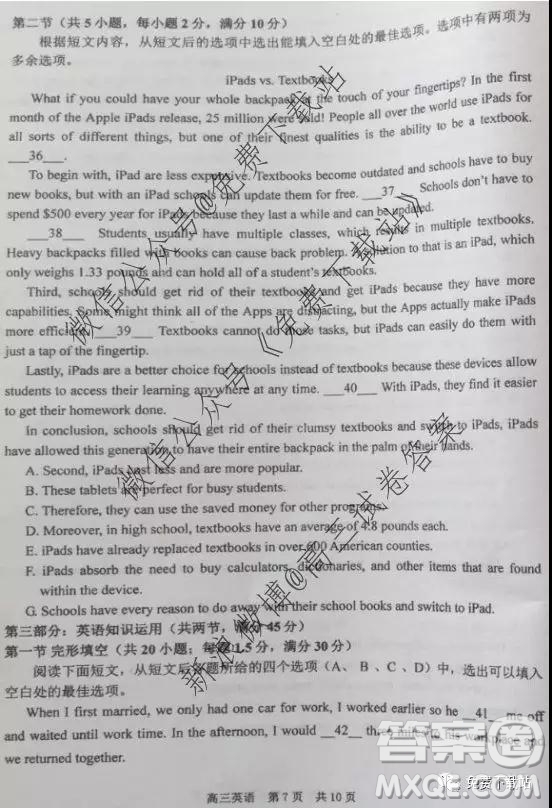 第二节（共 5 小题，每小题 2 分，满分 10 分）
根据短文内容，从短文后的选项中选出能填入空白处的最佳选项。选项中有两项为
多余选项。
iPads vs. Textbooks
What if you could have your whole backpack at the touch of your fingertips? In the first
month of the Apple iPads release, 25 million were sold! People all over the world use iPads for
all sorts of different things, but one of their finest qualities is the ability to be a textbook.
___36___.
To begin with, iPad are less expensive. Textbooks become outdated and schools have to buy
new books, but with an iPad schools can update them for free. ___37___ Schools don't have to
spend $500 every year for iPads because they last a while and can be updated.
___38___ Students usually have multiple classes, which results in multiple textbooks.
Heavy backpacks filled with books can cause back problem. A solution to that is an iPad, which
only weighs 1.33 pounds and can hold all of a student's textbooks.
Third, schools should get rid of their textbooks and get iPads because they have more
capabilities. Some might think all of the Apps are distracting, but the Apps actually make iPads
more efficient. ___39___ Textbooks cannot do those tasks, but iPads can easily do them with
just a tap of the fingertip.
Lastly, iPads are a better choice for schools instead of textbooks because these devices allow
students to access their learning anywhere at any time. ___40___ With iPads, they find it easier
to get their homework done.
In conclusion, schools should get rid of their clumsy textbooks and switch to iPads, iPads
have allowed this generation to have their entire backpack in the palm of their hands.
A. Second, iPads cost less and are more popular.
B. These tablets are perfect for busy students.
C. Therefore, they can use the saved money for other programs.
D. Moreover, in high school, textbooks have an average of 4.8 pounds each.
E. iPads have already replaced textbooks in over 600 American counties.
F. iPads absorb the need to buy calculators, dictionaries, and other items that are found
within the device.
G. Schools have every reason to do away with their school books and switch to iPad.
第三部分：英语知识运用（共两节，满分 45 分）
第一节 完形填空（共 20 小题；每题 1.5 分，满分 30 分）
阅读下面短文，从短文后各题所给的四个选项（A、 B 、C 、D）中，选出可以填入
空白处的最佳选项。
When I first married, we only had one car for work, I worked earlier so he __41__ me off
and waited until work time. In the afternoon, I would __42__ three miles to his workplace and
we returned together.
高三英语 第 7 页 共 10 页
微信公众号@免费下载站
微信公众号《免费下载站》
新浪微博@高三试卷答案
答案圈
MXQE.COM
免费下载站